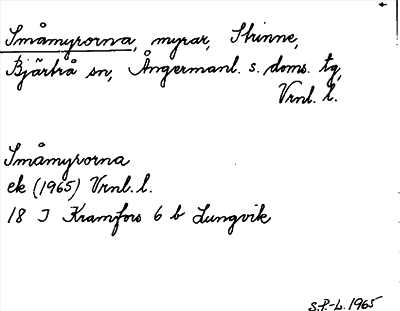 Småmyrorna, myrar, Strinne,
Bjärtrå sn, Ångermanl. s. doms. tg,
Vrnl. l.
Småmyrorna
ek (1965) Vrnl. l.
18 I Kramfors 6 b Lungvik
S.P.-L. 1965